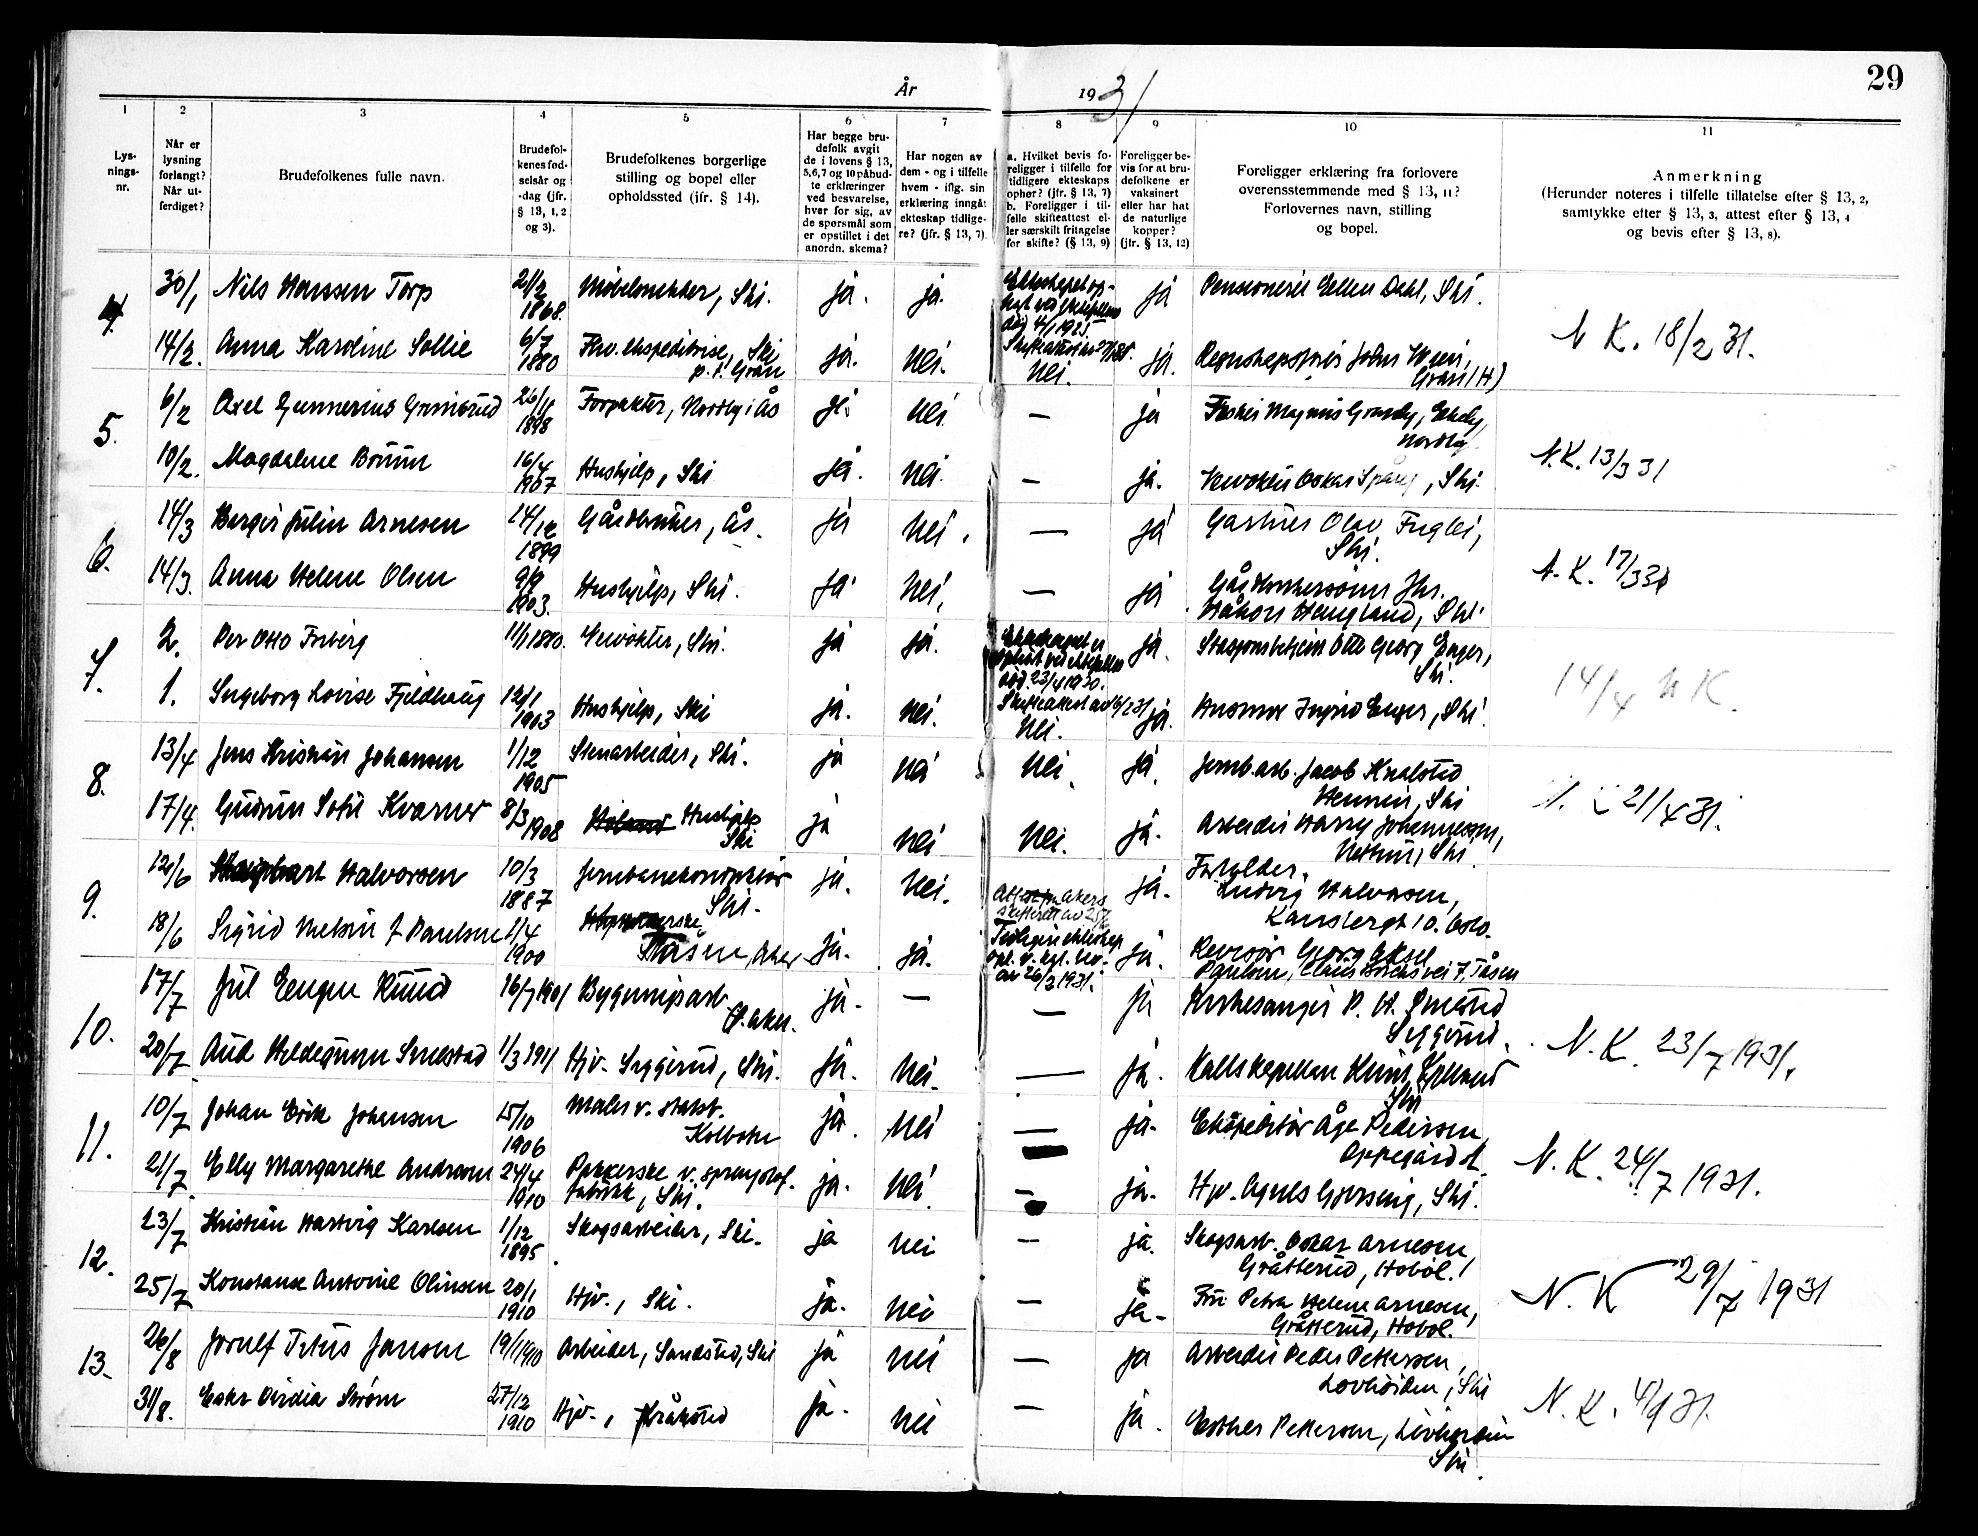 29
År 1931
1 2 3 4 5 6 7 8 9 10 11
Lys-
nings-
nr.
Når er
lysning
forlangt?
Når ut-
ferdiget?
Brudefolkenes fulle navn.
Brudefol-
kenes fød-
selsår og
-dag (jfr.
§ 13, 1, 2
og 3).
Brudefolkenes borgerlige
stilling og bopel eller
opholdssted (jfr. § 14).
Har begge bru-
defolk avgit
de i lovens § 13,
5,6,7 og 10 påbud-
te erklæringer
ved besvarelse,
hver for sig, av
de spørsmål som
er opstillet i det
anordn. skema?
Har nogen av
dem - og i tilfelle
hvem - iflg. sin
erklæring inngåt
ekteskap tidlige-
re? (jfr. § 13, 7).
a. Hvilket bevis fo-
religger i tilfelle for
tidligere ekteskaps
ophør? (jfr. § 13, 7)
b. Foreligger i til-
felle skifteattest el-
ler særskilt fritagelse
for skifte? (§ 13, 9)
Foreligger be-
vis for at bru-
defolkene er
vaksinert
eller har hat
de naturlige
kopper?
(jfr. § 13, 12)
Foreligger erklæring fra forlovere
overensstemmende med § 13, 11?
Forlovernes navn, stilling
og bopel.
Anmerkning
(Herunder noteres i tilfelle tillatelse efter § 13, 2,
samtykke efter § 13, 3, attest efter § 13, 4
og bevis efter § 13, 8).
4. 30/1 Nils Hanssen Torp 21/2 1868. Møbelsnekker, Ski. ja. ja. Ekteskapet op-
hørt ved ektefellens
død 4/1 1925 ja Pensionerei Ellen Dahl, Ski. N K. 18/2 31.
14/2. Anna Karoline Sollie 6/7 1880 Frv. ekspeditrise, Ski
p. t. Gran ja. nei. nei. ja. Regnskapsfører John Wien,
Gran (H)
5. 6/2 Axel Gunnerius Grimsrud 26/11 1898 Forpakter, Nordby i Ås ja nei — ja Magnus Granby, Ekeby,
Nordby. N.K. 13/3 31
10/2. Magdalene Bruun 16/4 1907 Hushjelp, Ski ja. nei. — ja. Oskar Spang, Ski.
6. 14/3 Birger Julin Arnesen 14/12 1899 Gårdbruker, Ås. ja nei. — ja Gartner Olav Fuglei,
Ski. N. K. 17/3 31
14/3. Anna Helene Olsen 9/9 1903. Hushjelp, Ski. ja. nei. — ja Gårdbrukersønn Jhs.
Håkon Haugland, Ski.
7. 2. Per Otto Friberg 11/1 1880. Ski. ja ja. Ekteskapet er
ophørt ved ektefellens
død 23/4 1930.
Skifteattest av 6/2 31 ja. Stasjonsbetjent Otto Georg Enger,
Ski. 14/4 N K.
1. Ingeborg Lovise Fjeldhaug 12/1 1903 Hushjelp, Ski ja. nei. nei. ja. Husmor Ingrid Enger, Ski.
8. 13/4 Jens Kristian Johansen 1/12 1905 Stenarbeider, Ski. ja nei nei. ja. Jernb.arb. Jacob Knalstad
Ski 21/4 31.
17/4. Gudrun Sofie Kværner 8/3 1908 Hushjelp
Ski ja nei nei. ja. Arbeider Harry Johannessen,
Ski.
9. 12/6 Halvorsen 10/3 1887 Jernbanekonduktør
Ski. ja. nei. ja. Forgylder
Ludvig Halvorsen,
10. Oslo.
18/6 Sigrid f Paulsen 1/4 1900 Tåsen, Aker ja. ja. Tidligere ekteskap
av 26/3 1931. ja. Revisor Georg Aksel
Paulsen, 7, Tåsen
10. 17/7 Jul Eugen Ruud 16/7 1901 Bygningsarb.
Ø. Aker. ja. — — ja Kirkesanger P. H. Smestad
Siggerud. N. K. 23/7 1931.
20/7 Aud Hildegunn Smestad 1/3 1911 Hjv. Siggerud, Ski. ja. nei. — ja. Kallskapellan
Ski
11. 10/7 Johan Erik Johansen 15/10 1906 Maler v. statsb.
Kolbotn ja. nei — ja. Ekspeditør Åge Pedersen,
Oppegård st. N. K. 24/7 1931.
21/7 Elly Margarethe Andresen 24/4 1910 Pakkerske v. sprengstof-
fabrikk, Ski. ja. nei. — ja. Hjv. Agnes Ski.
12. 23/7 Kristian Hartvig Karlsen 1/12 1895. Skogsarbeider, Ski. ja nei — ja. Skogsarb. Oskar Arnesen,
Gråtterud, Hobøl. N. K 29/7 1931
25/7 Konstanse Antonie Olinsen 20/1 1910 Hjv., Ski. ja. nei — ja. Fru Petra Helene Arnesen,
Gråtterud, Hobøl.
13. 26/8 Jornlf Titus Jansen 19/1 1910 Arbeider, Sandsted, Ski ja nei — ja Arbeider Peder Pettersen,
Lovhøiden, Ski N. K. 4/9 31.
31/8. Ester Strøm 27/12 1910 Hjv., Kråkstad ja. nei — ja. Esther Pettersen, Lovhøiden
Ski.